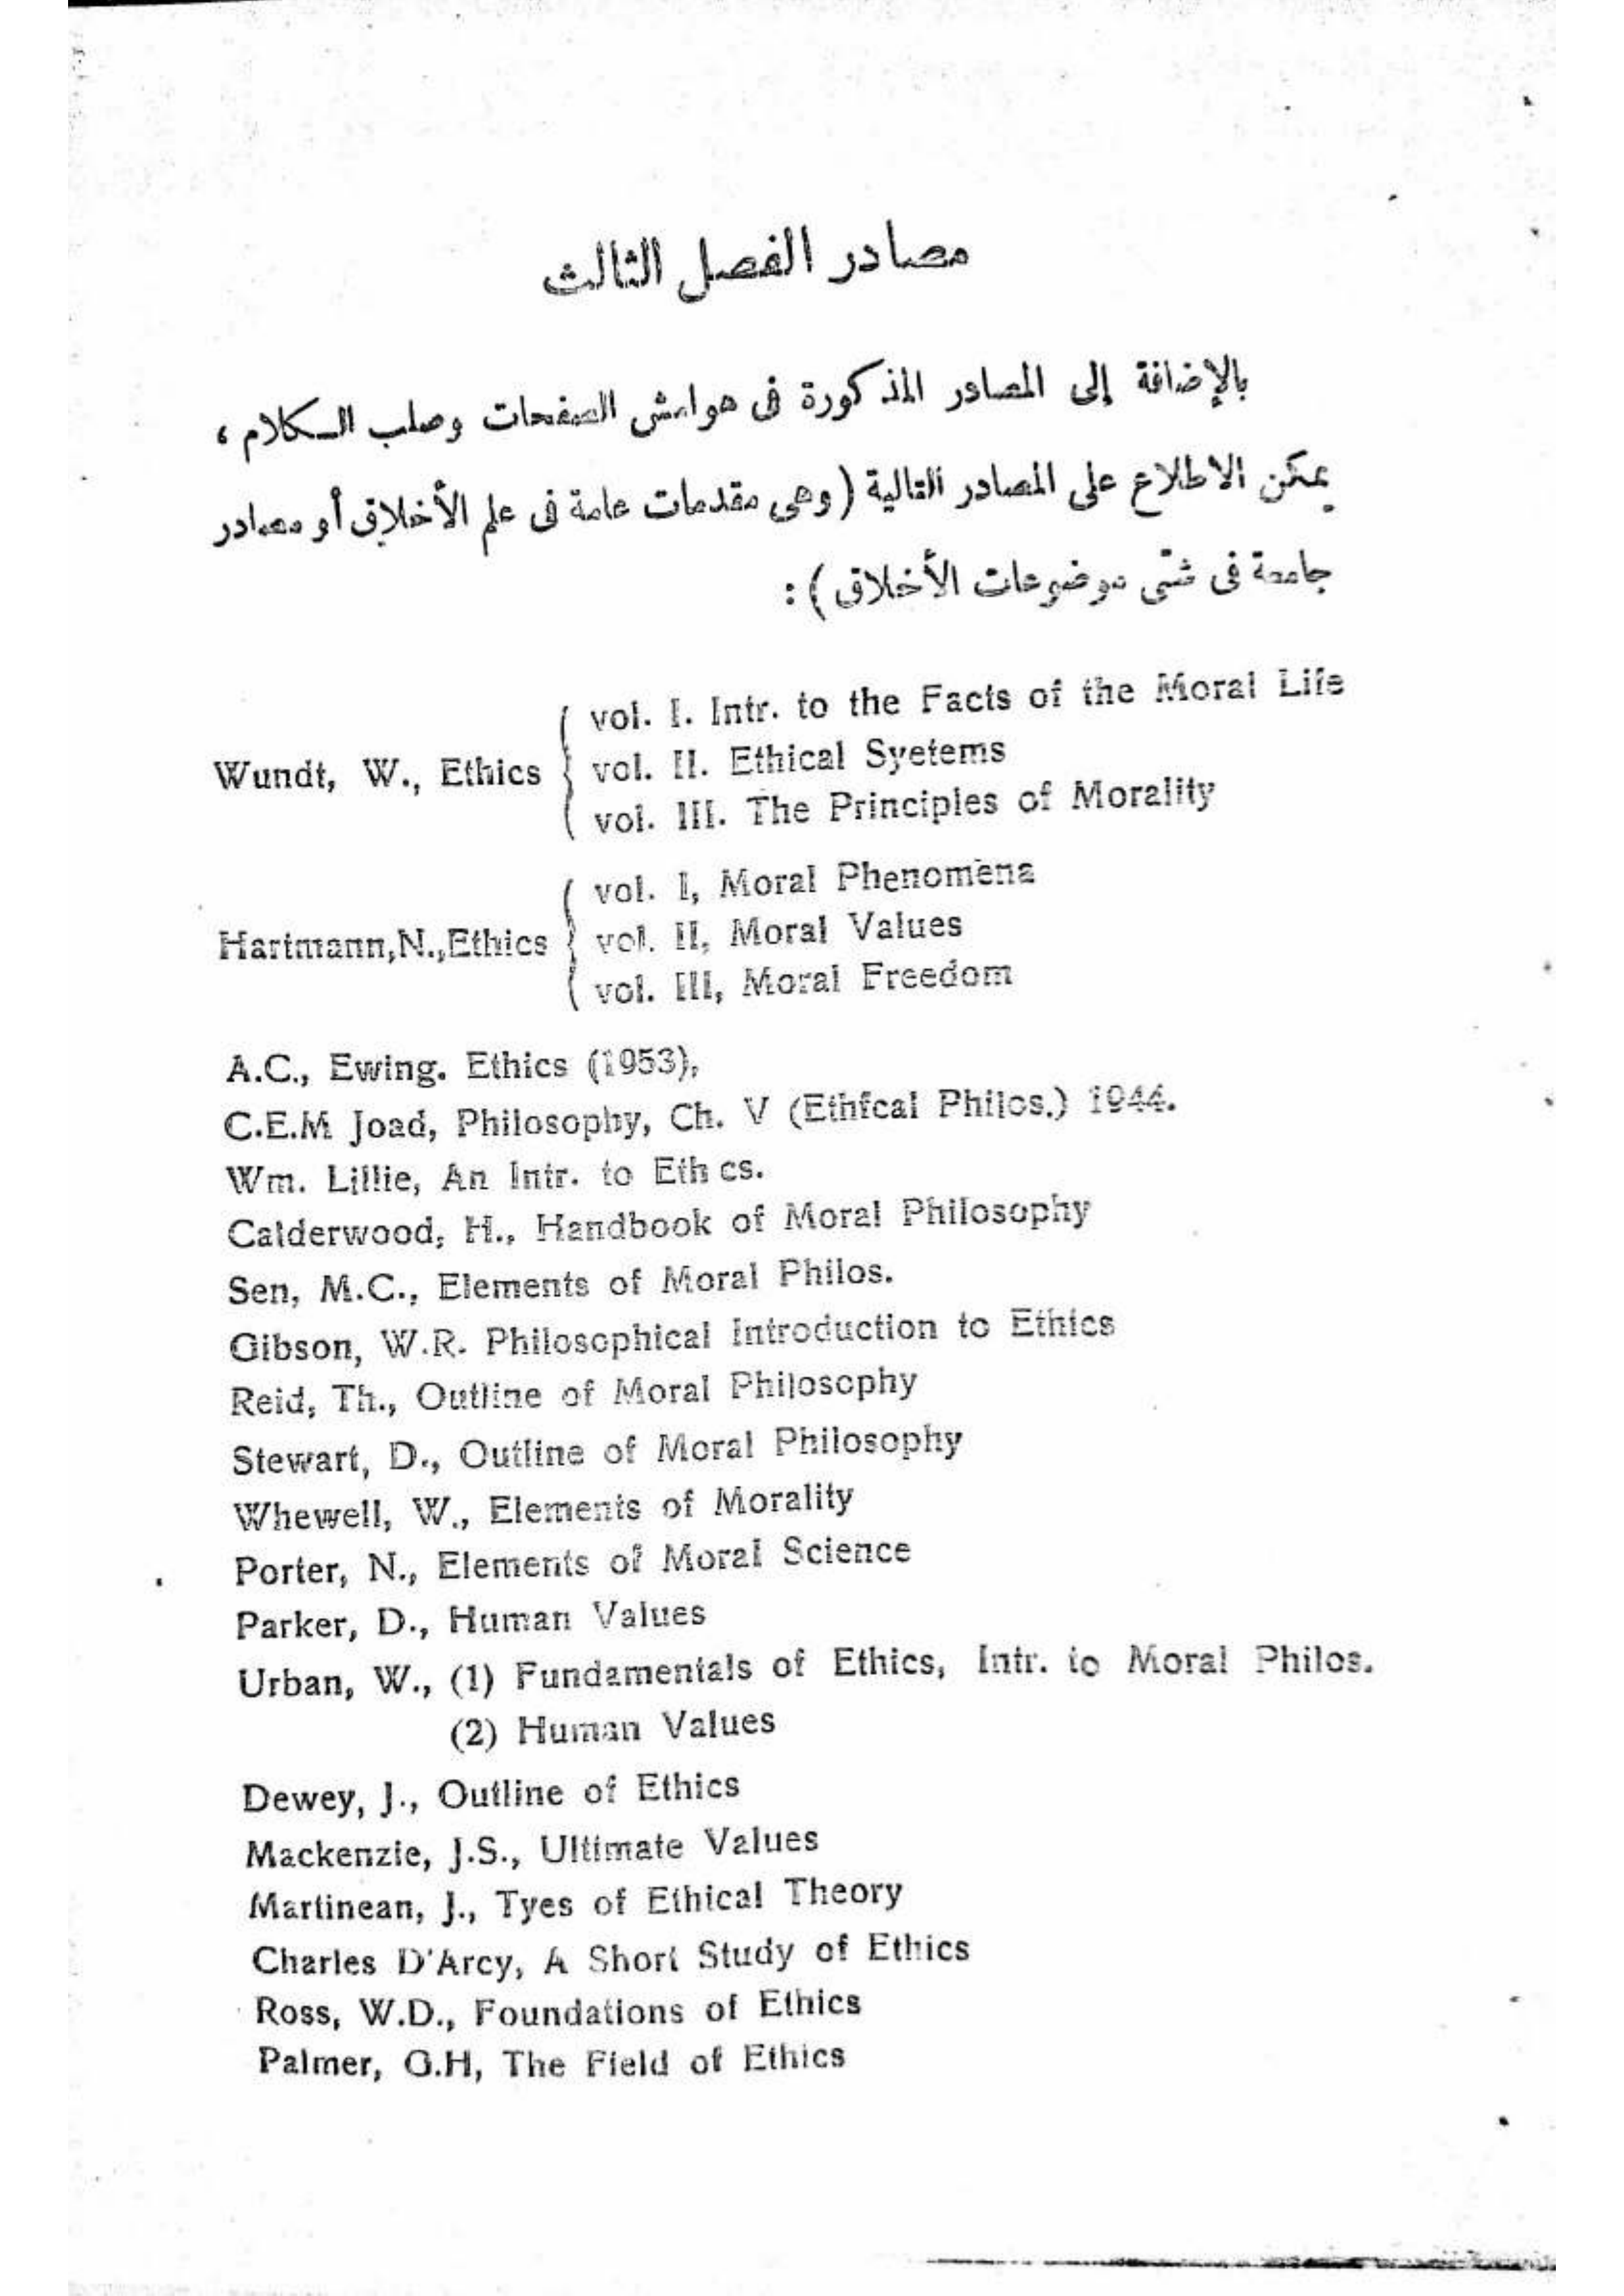 مصادر الفصل الثالث
بالإضافة إلى المصادر المذكورة فى هوامش الصفحات وصلب الكلام ،
يمكن الاطلاع على المصادر التالية (وهى مقدمات عامة فى علم الأخلاق أو مصادر
جامعة فى شتى موضوعات الأخلاق) :
vol. I. Intr. to the Facts of the Moral Life
Wundt, W., Ethics { vol. II. Ethical Syetems
vol. III. The Principles of Morality
vol. I, Moral Phenomena
Hartmann,N.,Ethics { vol. II, Moral Values
vol. III, Moral Freedom
A.C., Ewing. Ethics (1953),
C.E.M Joad, Philosophy, Ch. V (Ethfcal Philos.) 1944.
Wm. Lillie, An Intr. to Eth cs.
Calderwood, H., Handbook of Moral Philosophy
Sen, M.C., Elements of Moral Philos.
Gibson, W.R. Philosophical Introduction to Ethics
Reid, Th., Outline of Moral Philosophy
Stewart, D., Outline of Moral Philosophy
Whewell, W., Elements of Morality
Porter, N., Elements of Moral Science
Parker, D., Human Values
Urban, W., (1) Fundamentals of Ethics, Intr. to Moral Philos.
(2) Human Values
Dewey, J., Outline of Ethics
Mackenzie, J.S., Ultimate Values
Martinean, J., Tyes of Ethical Theory
Charles D'Arcy, A Short Study of Ethics
Ross, W.D., Foundations of Ethics
Palmer, G.H, The Field of Ethics